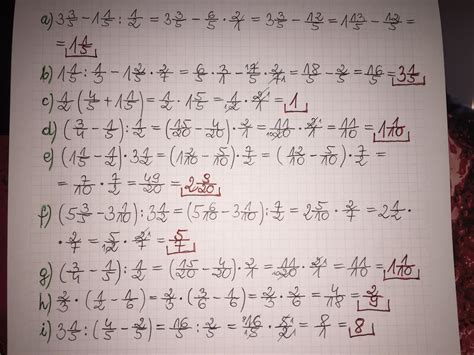 a) 3 3/5 − 1 1/5 : 1/2 = 3 3/5 − 6/5 · 2/1 = 3 3/5 − 12/5 = 1 13/5 − 12/5 =
= 1 1/5
b) 1 1/5 : 1/3 − 1 2/5 · 2/7 = 6/5 · 3/1 − 7/5 · 2/7 = 18/5 − 2/5 = 16/5 = 3 1/5
c) 1/2 (4/5 + 1 1/5) = 1/2 · 1 5/5 = 1/2 · 2/1 = 1
d) (3/4 − 1/5) : 1/2 = (15/20 − 4/20) · 2/1 = 11/20 · 2/1 = 11/10 = 1 1/10
e) (1 1/5 − 1/2) · 3 1/2 = (1 2/10 − 5/10) · 7/2 = (12/10 − 5/10) · 7/2 =
= 7/10 · 7/2 = 49/20 = 2 9/20
f) (5 3/5 − 3 1/10) : 3 1/2 = (5 6/10 − 3 1/10) : 7/2 = 2 5/10 · 2/7 = 2 1/2 ·
· 2/7 = 5/2 · 2/7 = 5/7
g) (3/4 − 1/5) : 1/2 = (15/20 − 4/20) · 2/1 = 11/20 · 2/1 = 11/10 = 1 1/10
h) 2/3 · (1/2 − 1/6) = 2/3 · (3/6 − 1/6) = 2/3 · 2/6 = 4/18 = 2/9
i) 3 1/5 : (4/5 − 2/5) = 16/5 : 2/5 = 16/5 · 5/2 = 8/1 = 8